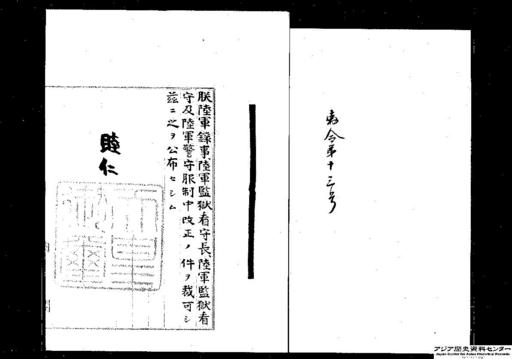 勅令第十三号
朕陸軍録事、陸軍監獄看守長、陸軍監獄看
守及陸軍警守服制中改正ノ件ヲ裁可シ
茲ニ之ヲ公布セシム
睦仁
アジア歴史資料センター
Japan Center for Asian Historical Records